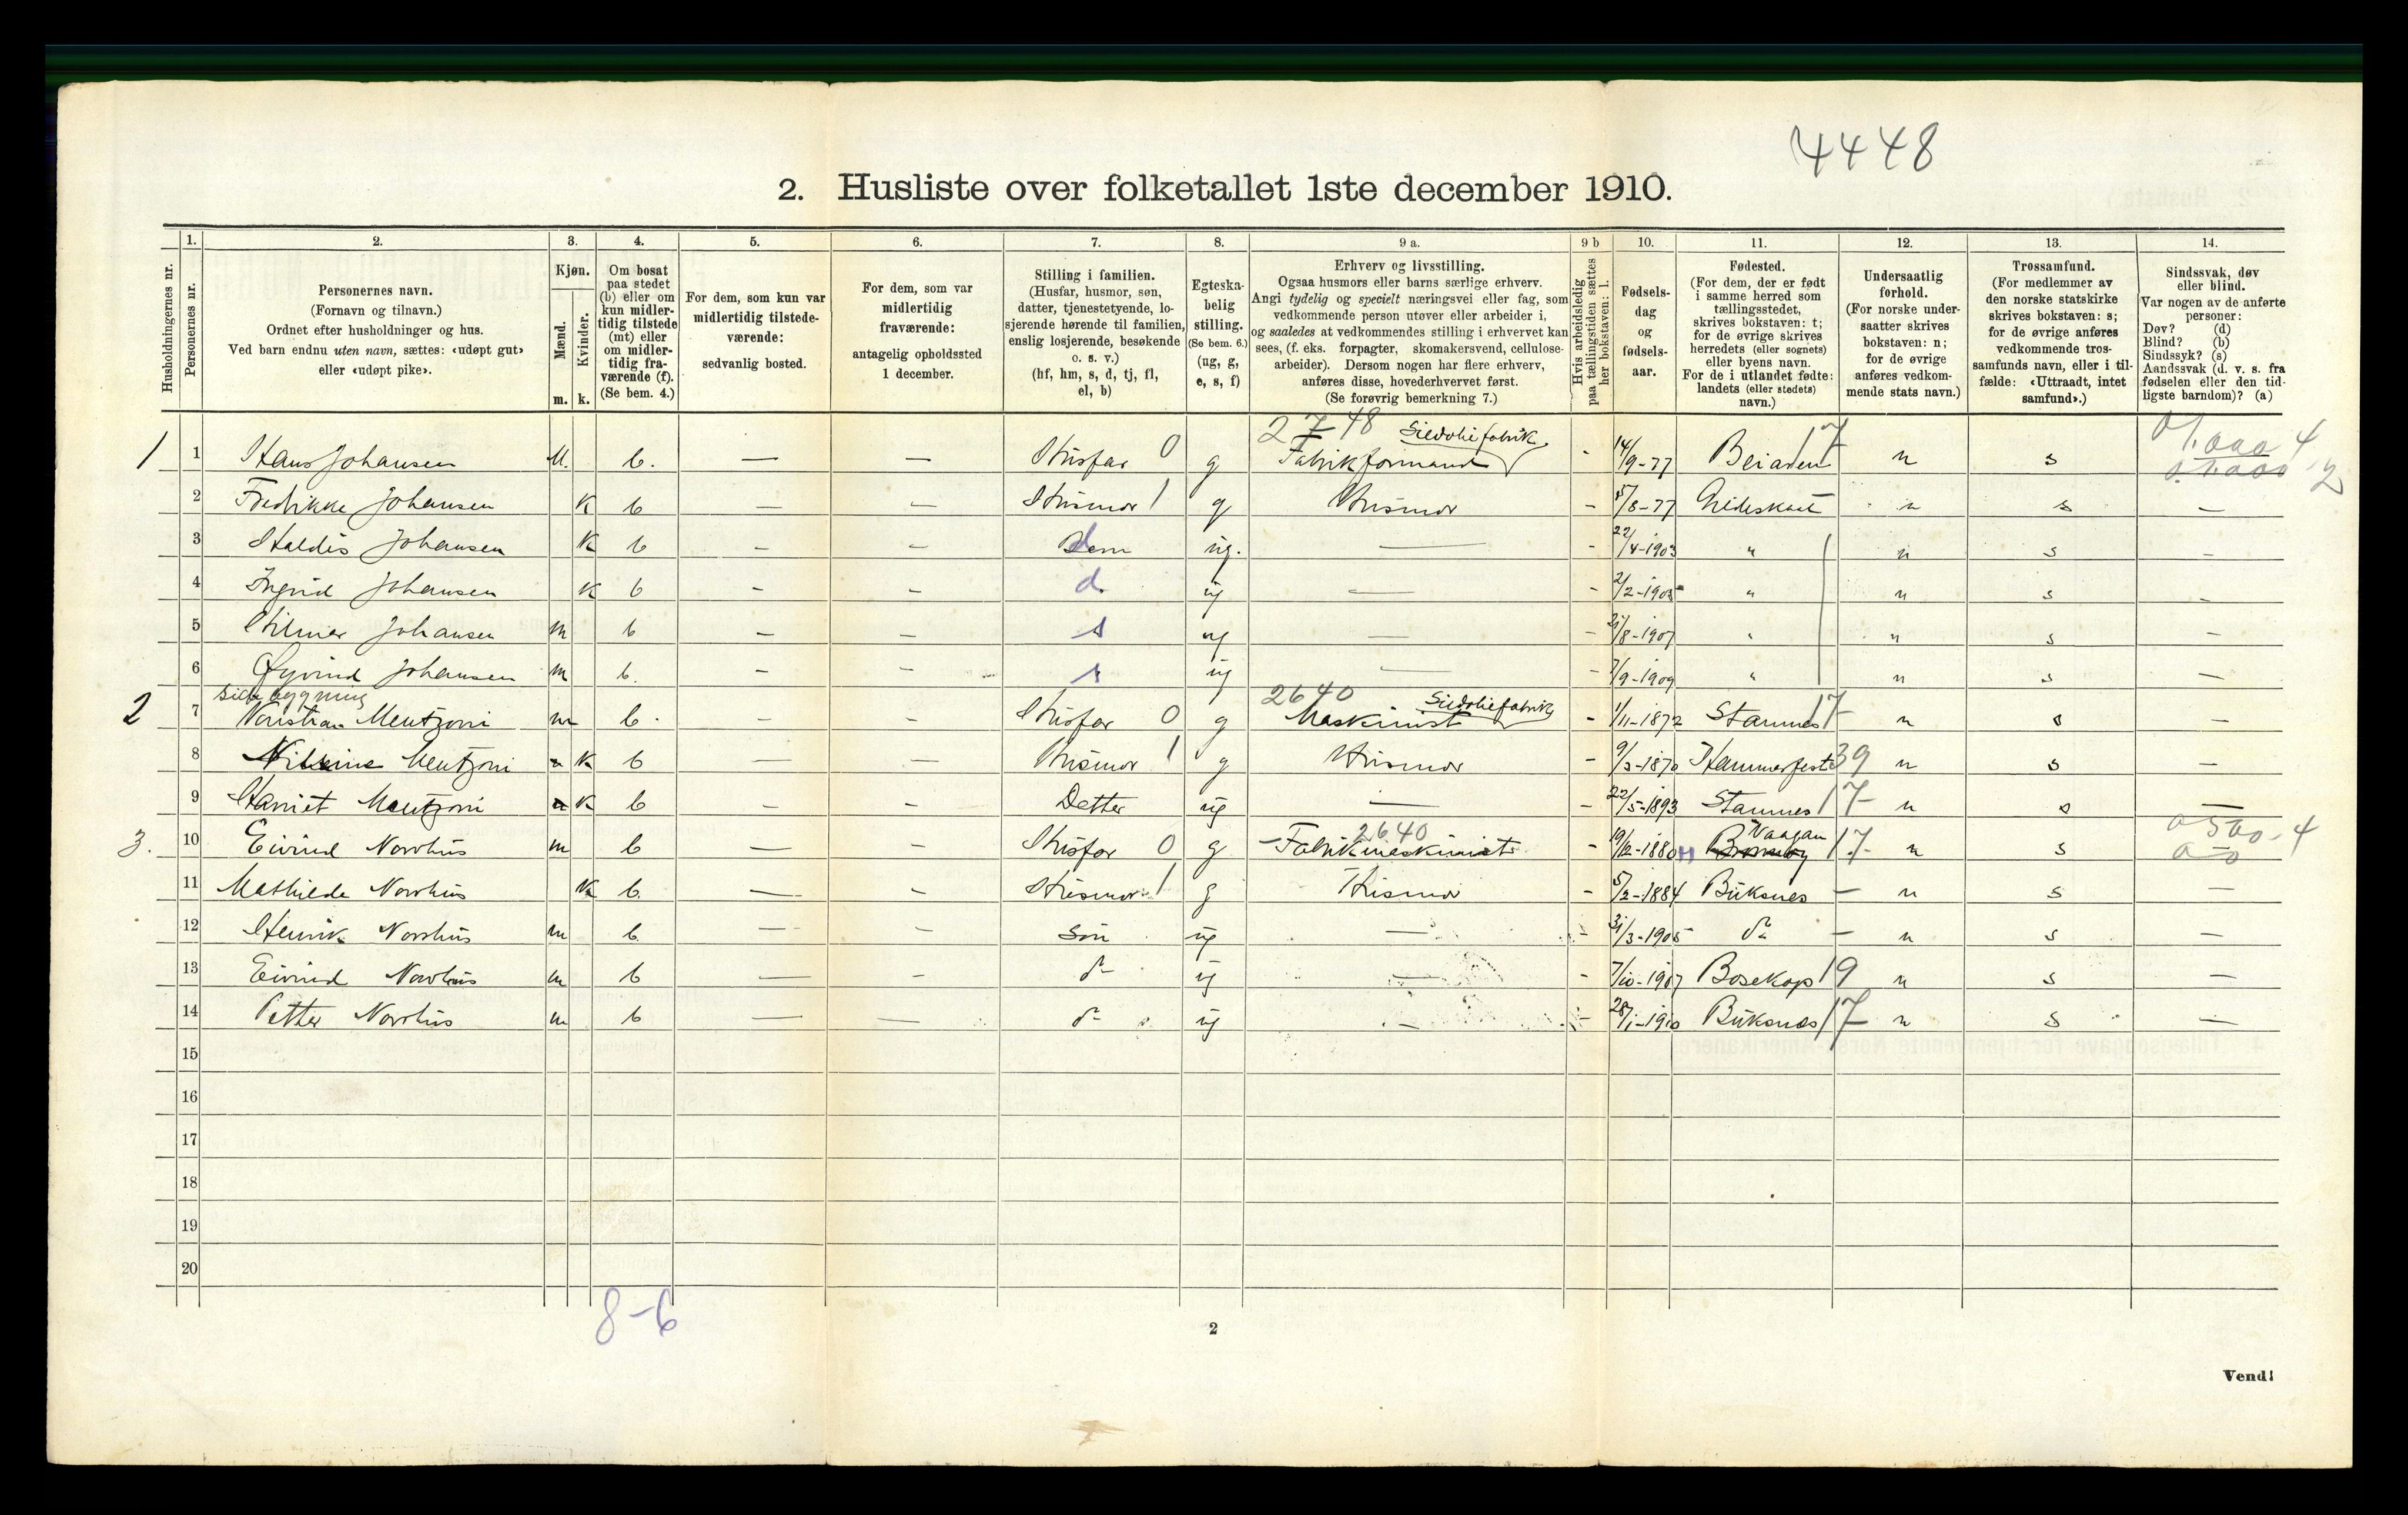 4448
2. Husliste over folketallet 1ste december 1910.
1. 2. 3. 4. 5. 6. 7. 8. 9 a. 9 b 10. 11. 12. 13. 14.
Husholdningernes nr.
Personernes nr.
Personernes navn.
(Fornavn og tilnavn.)
Ordnet efter husholdninger og hus.
Ved barn endnu uten navn, sættes: «udøpt gut»
eller «udøpt pike».
Kjøn.
Mænd.
Kvinder.
m. k.
Om bosat
paa stedet
(b) eller om
kun midler-
tidig tilstede
(mt) eller
om midler-
tidig fra-
værende (f).
(Se bem. 4.)
For dem, som kun var
midlertidig tilstede-
værende:
sedvanlig bosted.
For dem, som var
midlertidig
fraværende:
antagelig opholdssted
1 december.
Stilling i familien.
(Husfar, husmor, søn,
datter, tjenestetyende, lo-
sjerende hørende til familien,
enslig losjerende, besøkende
o. s. v.)
(hf, hm, s, d, tj, fl,
el, b)
Egteska-
belig
stilling.
(Se bem. 6.)
(ug, g,
e, s, f)
Erhverv og livsstilling.
Ogsaa husmors eller barns særlige erhverv.
Angi tydelig og specielt næringsvei eller fag, som
vedkommende person utøver eller arbeider i,
og saaledes at vedkommendes stilling i erhvervet kan
sees, (f. eks. forpagter, skomakersvend, cellulose-
arbeider). Dersom nogen har flere erhverv,
anføres disse, hovederhvervet først.
(Se forøvrig bemerkning 7.)
Hvis arbeidsledig
paa tællingstiden sættes
her bokstaven: l.
Fødsels-
dag
og
fødsels-
aar.
Fødested.
(For dem, der er født
i samme herred som
tællingsstedet,
skrives bokstaven: t;
for de øvrige skrives
herredets (eller sognets)
eller byens navn.
For de i utlandet fødte:
landets (eller stedets)
navn.)
Undersaatlig
forhold.
(For norske under-
saatter skrives
bokstaven: n;
for de øvrige
anføres vedkom-
mende stats navn.)
Trossamfund.
(For medlemmer av
den norske statskirke
skrives bokstaven: s;
for de øvrige anføres
vedkommende tros-
samfunds navn, eller i til-
fælde: «Uttraadt, intet
samfund».)
Sindssvak, døv
eller blind.
Var nogen av de anførte
personer:
Døv? (d)
Blind? (b)
Sindssyk? (s)
Aandssvak (d. v. s. fra
fødselen eller den tid-
ligste barndom)? (a)
2748 Sildoliefabrik
1 1 Hans Johansen M. b. — — Husfar 0 g Fabrikformand - 14/9-77 Beiaren 17 n s
2 Fredrikke Johansen K b — — Husmor 1 g Husmor - 5/8-77 Gildeskaal n s —
3 Haldis Johansen K b - - d ug. — - 22/4-1903 " n s -
4 Ingrid Johansen K b - - d. ug — - 2/2-1905 " n s -
5 Hilmar Johansen m b - - s ug — - 21/8-1907 " n s -
6 Øyvind Johansen m b. - - s ug — - 7/9-1909 " n s —
2640 Sildoliefabrik
2 7 Kristian Mentzoni m b. - - Husfar 0 g Maskinist - 1/11-1872 Stamnes 17 n s —
8 Mentzoni K b — — Husmor 1 g Husmor - 9/3-1870 Hammerfest 39 n s —
9 Harriet Mentzoni K b - - Detter ug — - 22/5-1893 Stamnes 17 n s —
2640 Vaagan 0 500-4
3. 10 Eivind Norvhus m b — - Husfar 0 g Fabrikmaskinist - 19/12-1880 17 n s
11 Mathilde Norvhus K b. — - Husmor 1 g Husmor - 5/2-1884 Buksnes — n s —
12 Henrik Norvhus m b. — - Søn ug — - 31/3-1905 do — n s —
13 Eivind Norvhus m b — - do ug — - 7/10-1907 Bosekop 19 n s —
14 Petter Norvhus m b — — do ug - - 28/1-1910 Buksnes 17 n s —
15
16
17
18
19
20
8-6
2
Vend!